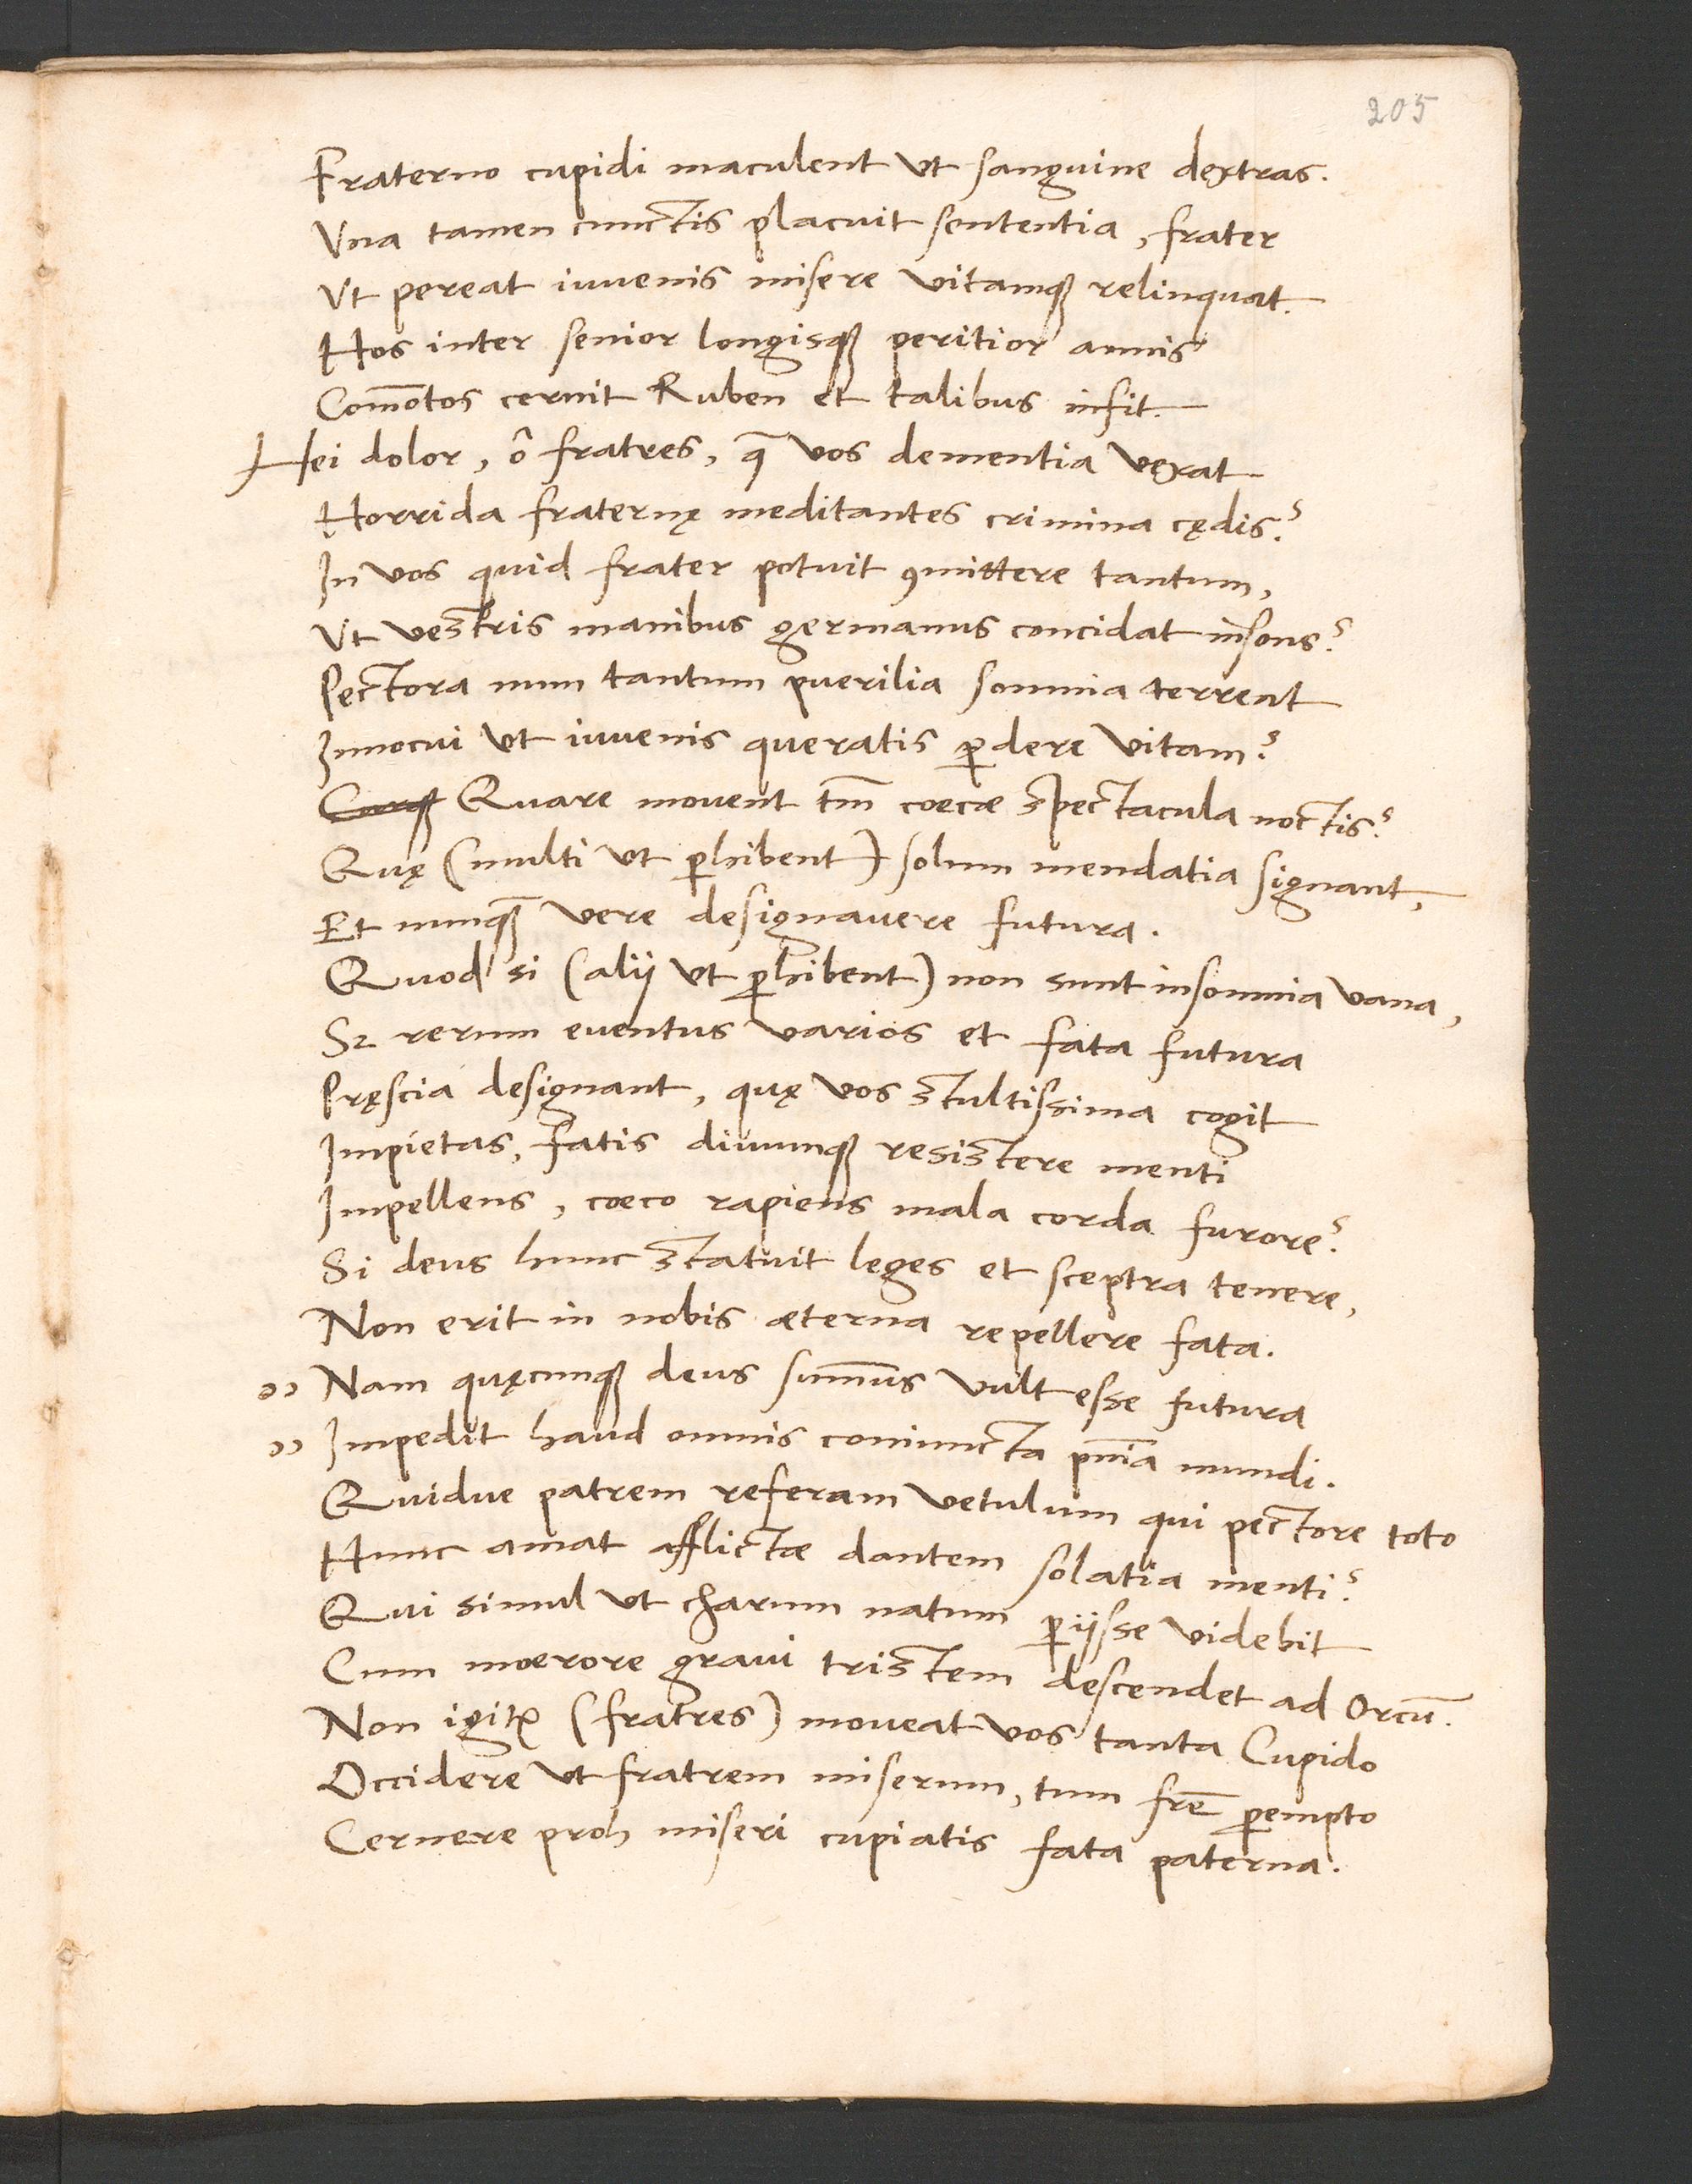 205
Fraterno cupidi maculent vt sanguine dextras.
Vna tamen cunctis placuit sententia, frater
Vt pereat iuuenis misere vitamqꝫ relinquat.
Hos inter senior longisqꝫ peritior annis
Com̄otos cernit Ruben et talibus infit.
Hei dolor, ô fratres, q̄ vos dementia vexat
Horrida fraternę meditantes crimina cędis?
In vos quid frater potuit ꝯmittere tantum,
Vt vestris manibus germanus concidat insons?
Pectora num tantum puerilia somnia terrent
Innocui vt iuuenis queratis ꝑdere vitam?
Curqꝫ Quare mouent tm̄ coecæ spectacula noctis?
Quę (multi vt ꝑhibent) solum mendatia signant,
Et nunqꝫ̄ vere designauere futura.
Quod si (alij vt ꝑhibent) non sunt insomnia vana,
Sꝫ rerum euentus varios et fata futura
Pręscia designant, quę vos stultissima cogit
Impietas, fatis diuumqꝫ resistere menti
Impellens, coeco rapiens mala corda furore?
Si deus hunc statuit leges et sceptra tenere,
Non erit in nobis æterna repellere fata.
" Nam quęcunqꝫ deus sum̄us vult esse futura
" Impedit haud omnis coniuncta pn̄ia mundi.
Quidue patrem referam vetulum qui pectore toto
Hunc amat afflictæ dantem solatia menti?
Qui simul vt charum natum ꝑijsse videbit
Cum moerore graui tristem descendet ad Orcū.
Non igitꝛ (fratres) moueat vos tanta Cupido
Occidere vt fratrem miserum, tum frē̄ ꝑempto
Cernere proh miseri cupiatis fata paterna.